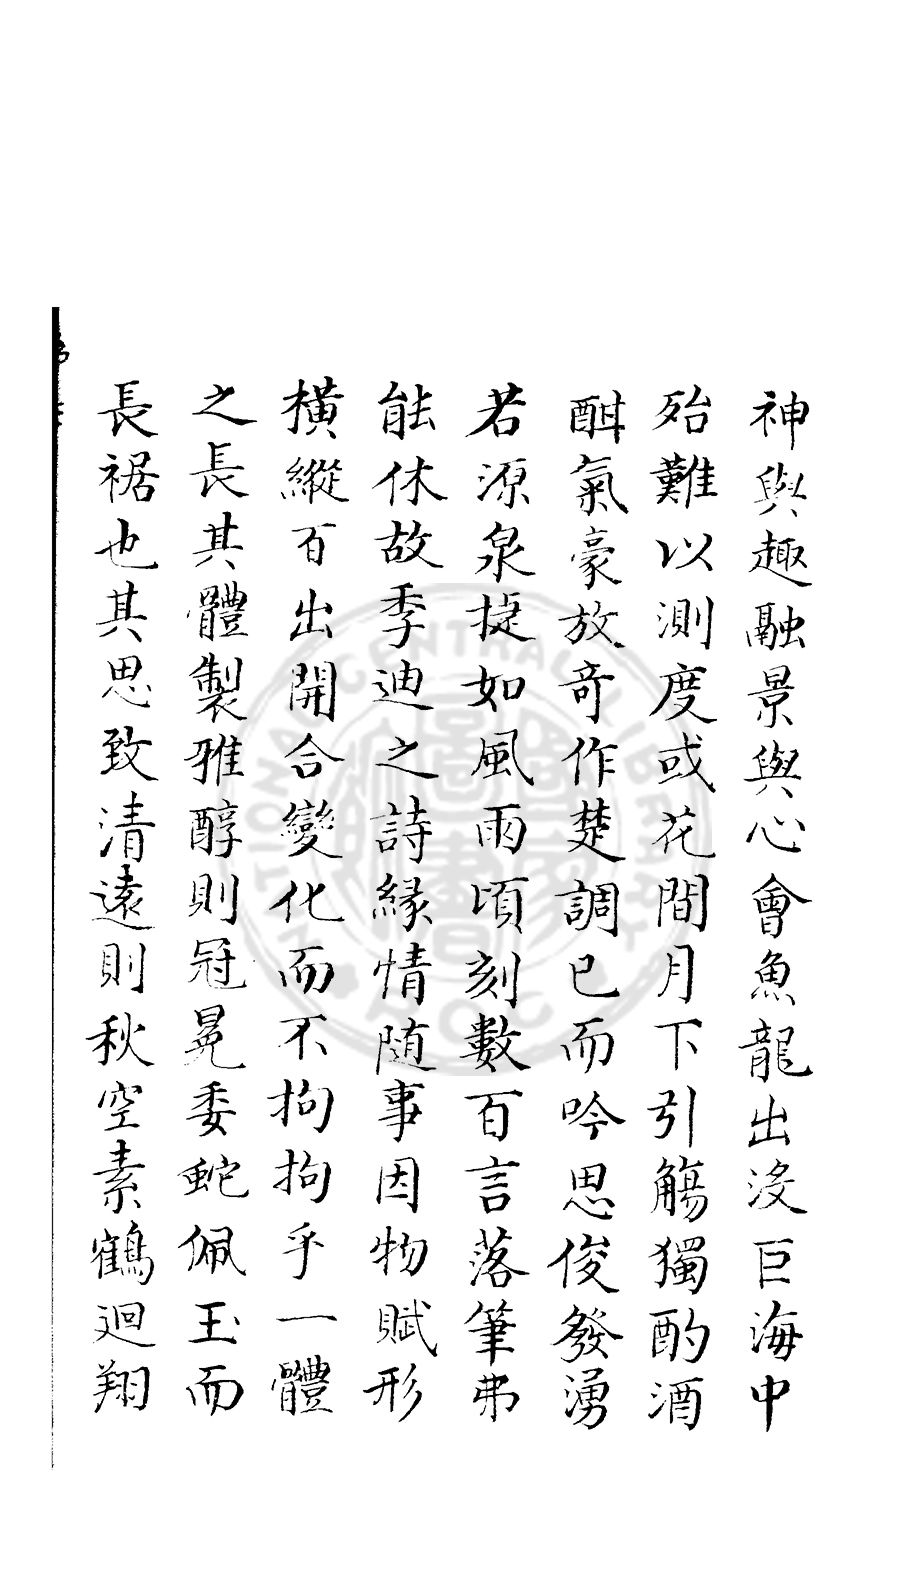 神與趣融景與心會魚龍出沒巨海中
殆難以測度或花間月下引觴獨酌酒
酣氣豪放奇作楚調已而吟思俊發湧
若源泉捷如風雨頃刻數百言落筆弗
能休故季迪之詩緣情随事因物賦形
橫縱百出開合變化而不拘拘乎一體
之長其體製雅醇則冠冕委蛇佩玉而
長裾也其思致清遠則秋空素鶴迴翔
NATIONAL CENTRAL LIBRARY